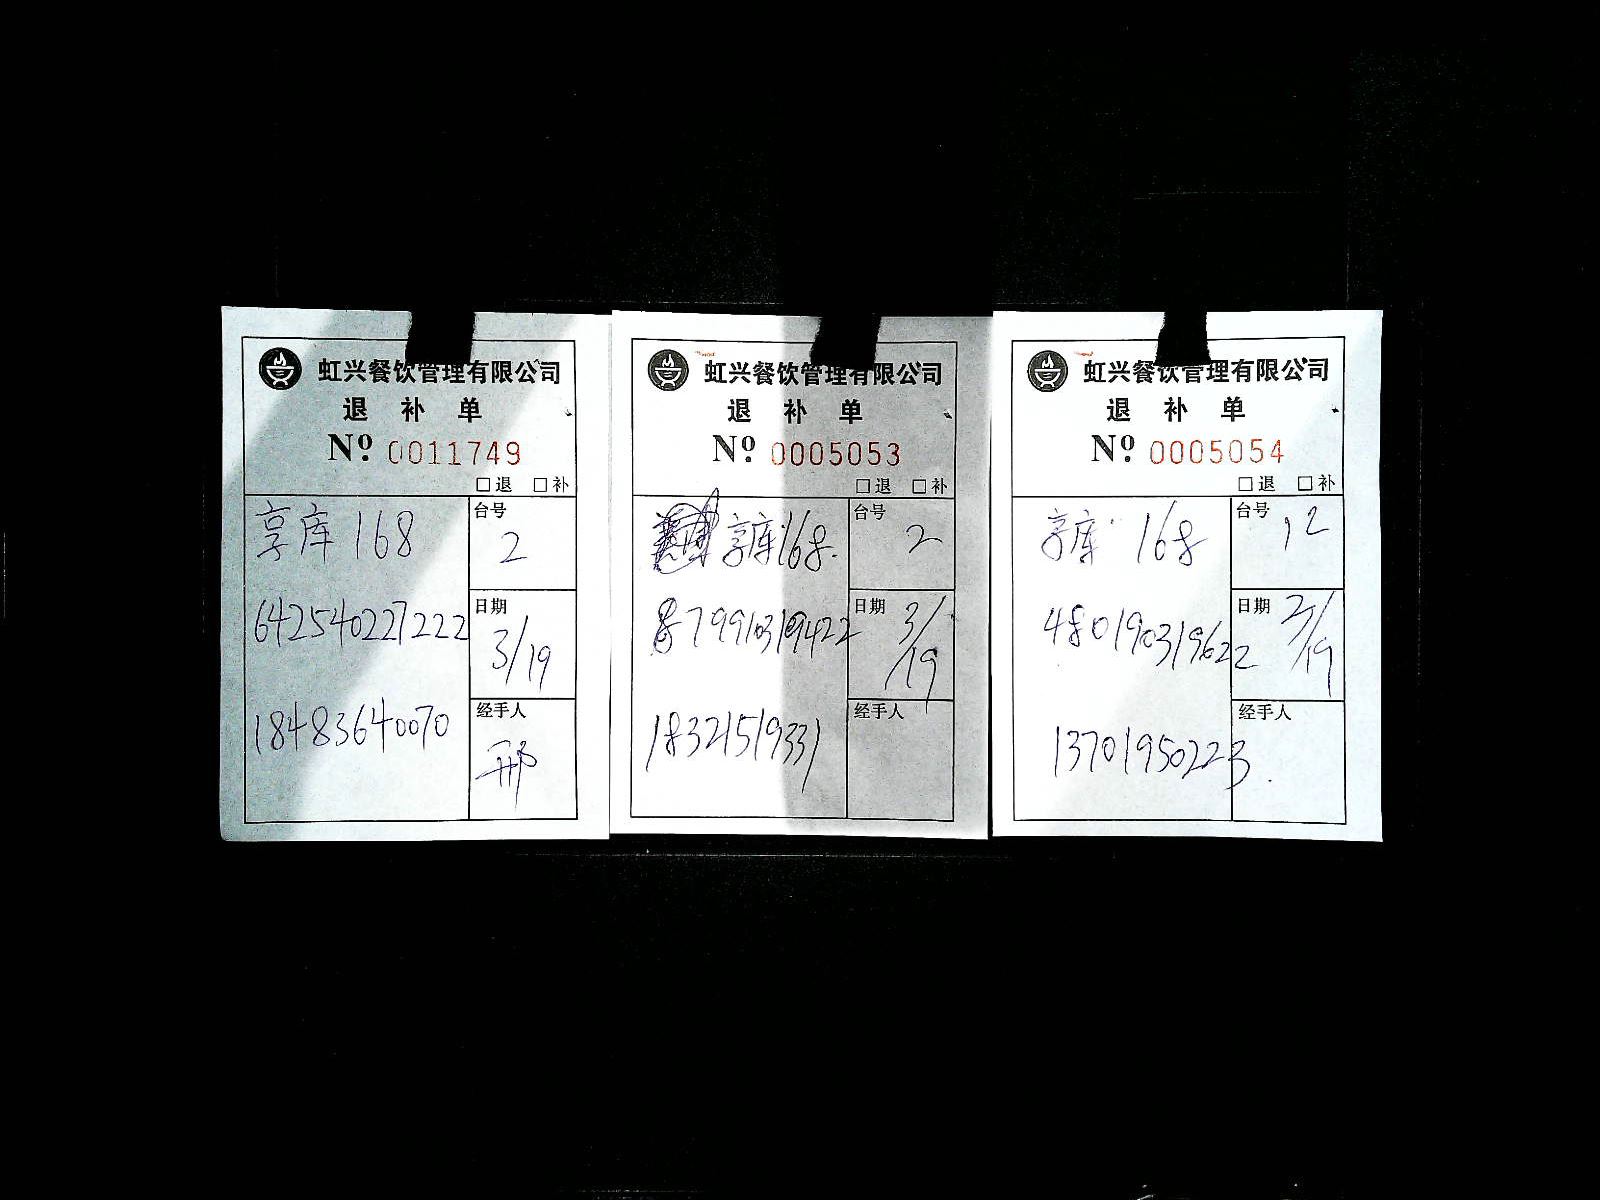 虹兴餐饮管理有限公司
退 补 单
Nº 0011749
□退 □补
享库 168
台号
2
642540227222
日期
3/19
18483640070
经手人
邢
虹兴餐饮管理有限公司
退 补 单
Nº 0005053
□退 □补
享库168.
台号
2
879910319422
日期
3/19
18321519331
经手人
虹兴餐饮管理有限公司
退 补 单
Nº 0005054
□退 □补
享库 168
台号
12
480190319622
日期
3/19
13701950223.
经手人